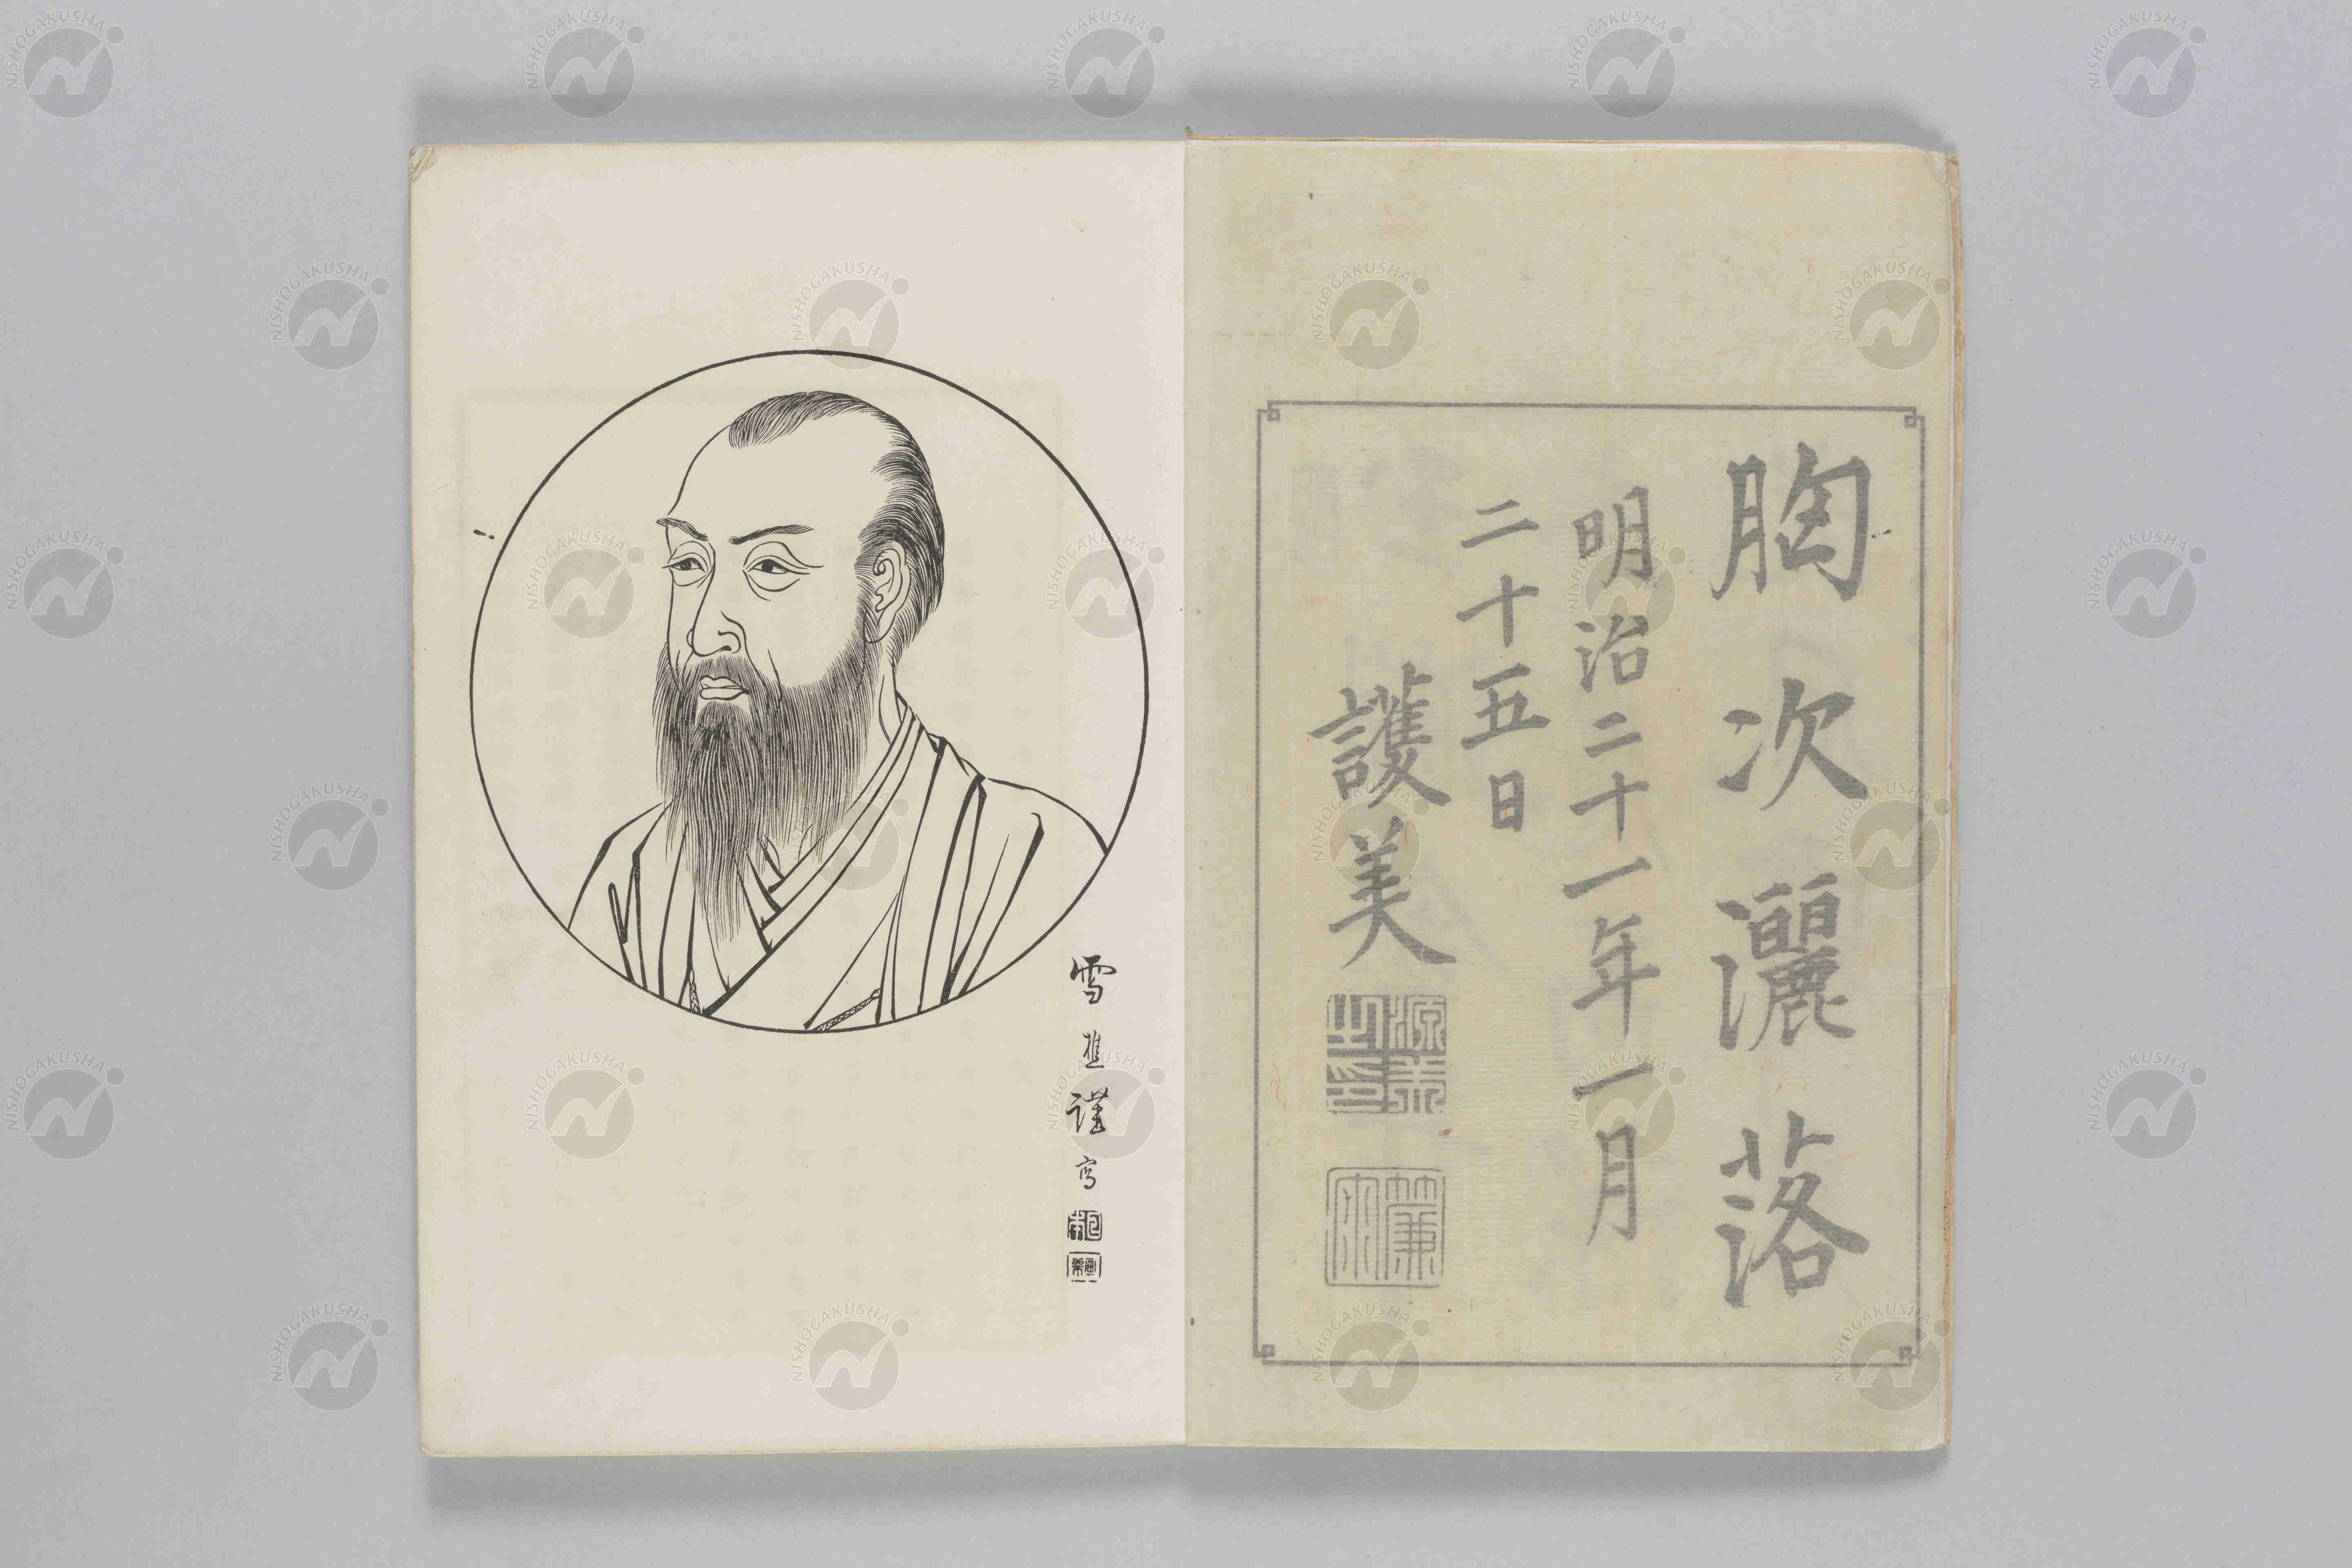 胸次灑落
明治二十一年一月
二十五日
護美
源護美印
簾雨
雪樵謹寫
NISHOGAKUSHA